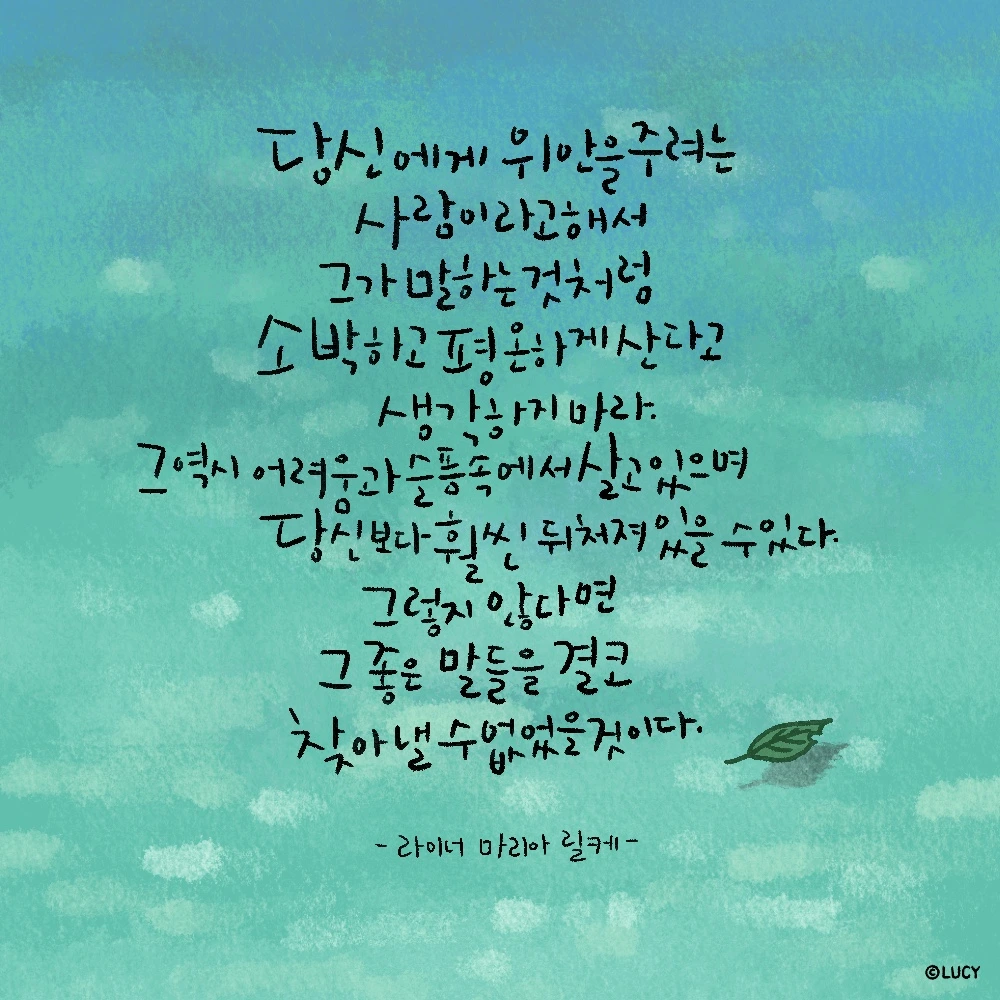 당신에게 위안을 주려는
사람이라고해서
그가 말하는것처럼
소박하고 평온하게 산다고
생각하지 마라.
그역시 어려움과 슬픔속에서 살고있으며
당신보다 훨씬 뒤처져있을 수있다.
그렇지 않다면
그 좋은 말들을 결코
찾아낼 수 없었을것이다.
- 라이너 마리아 릴케 -
©LUCY